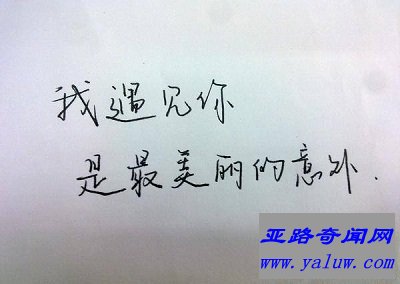 我遇见你
是最美丽的意外.
亚路奇闻网
www.yaluw.com